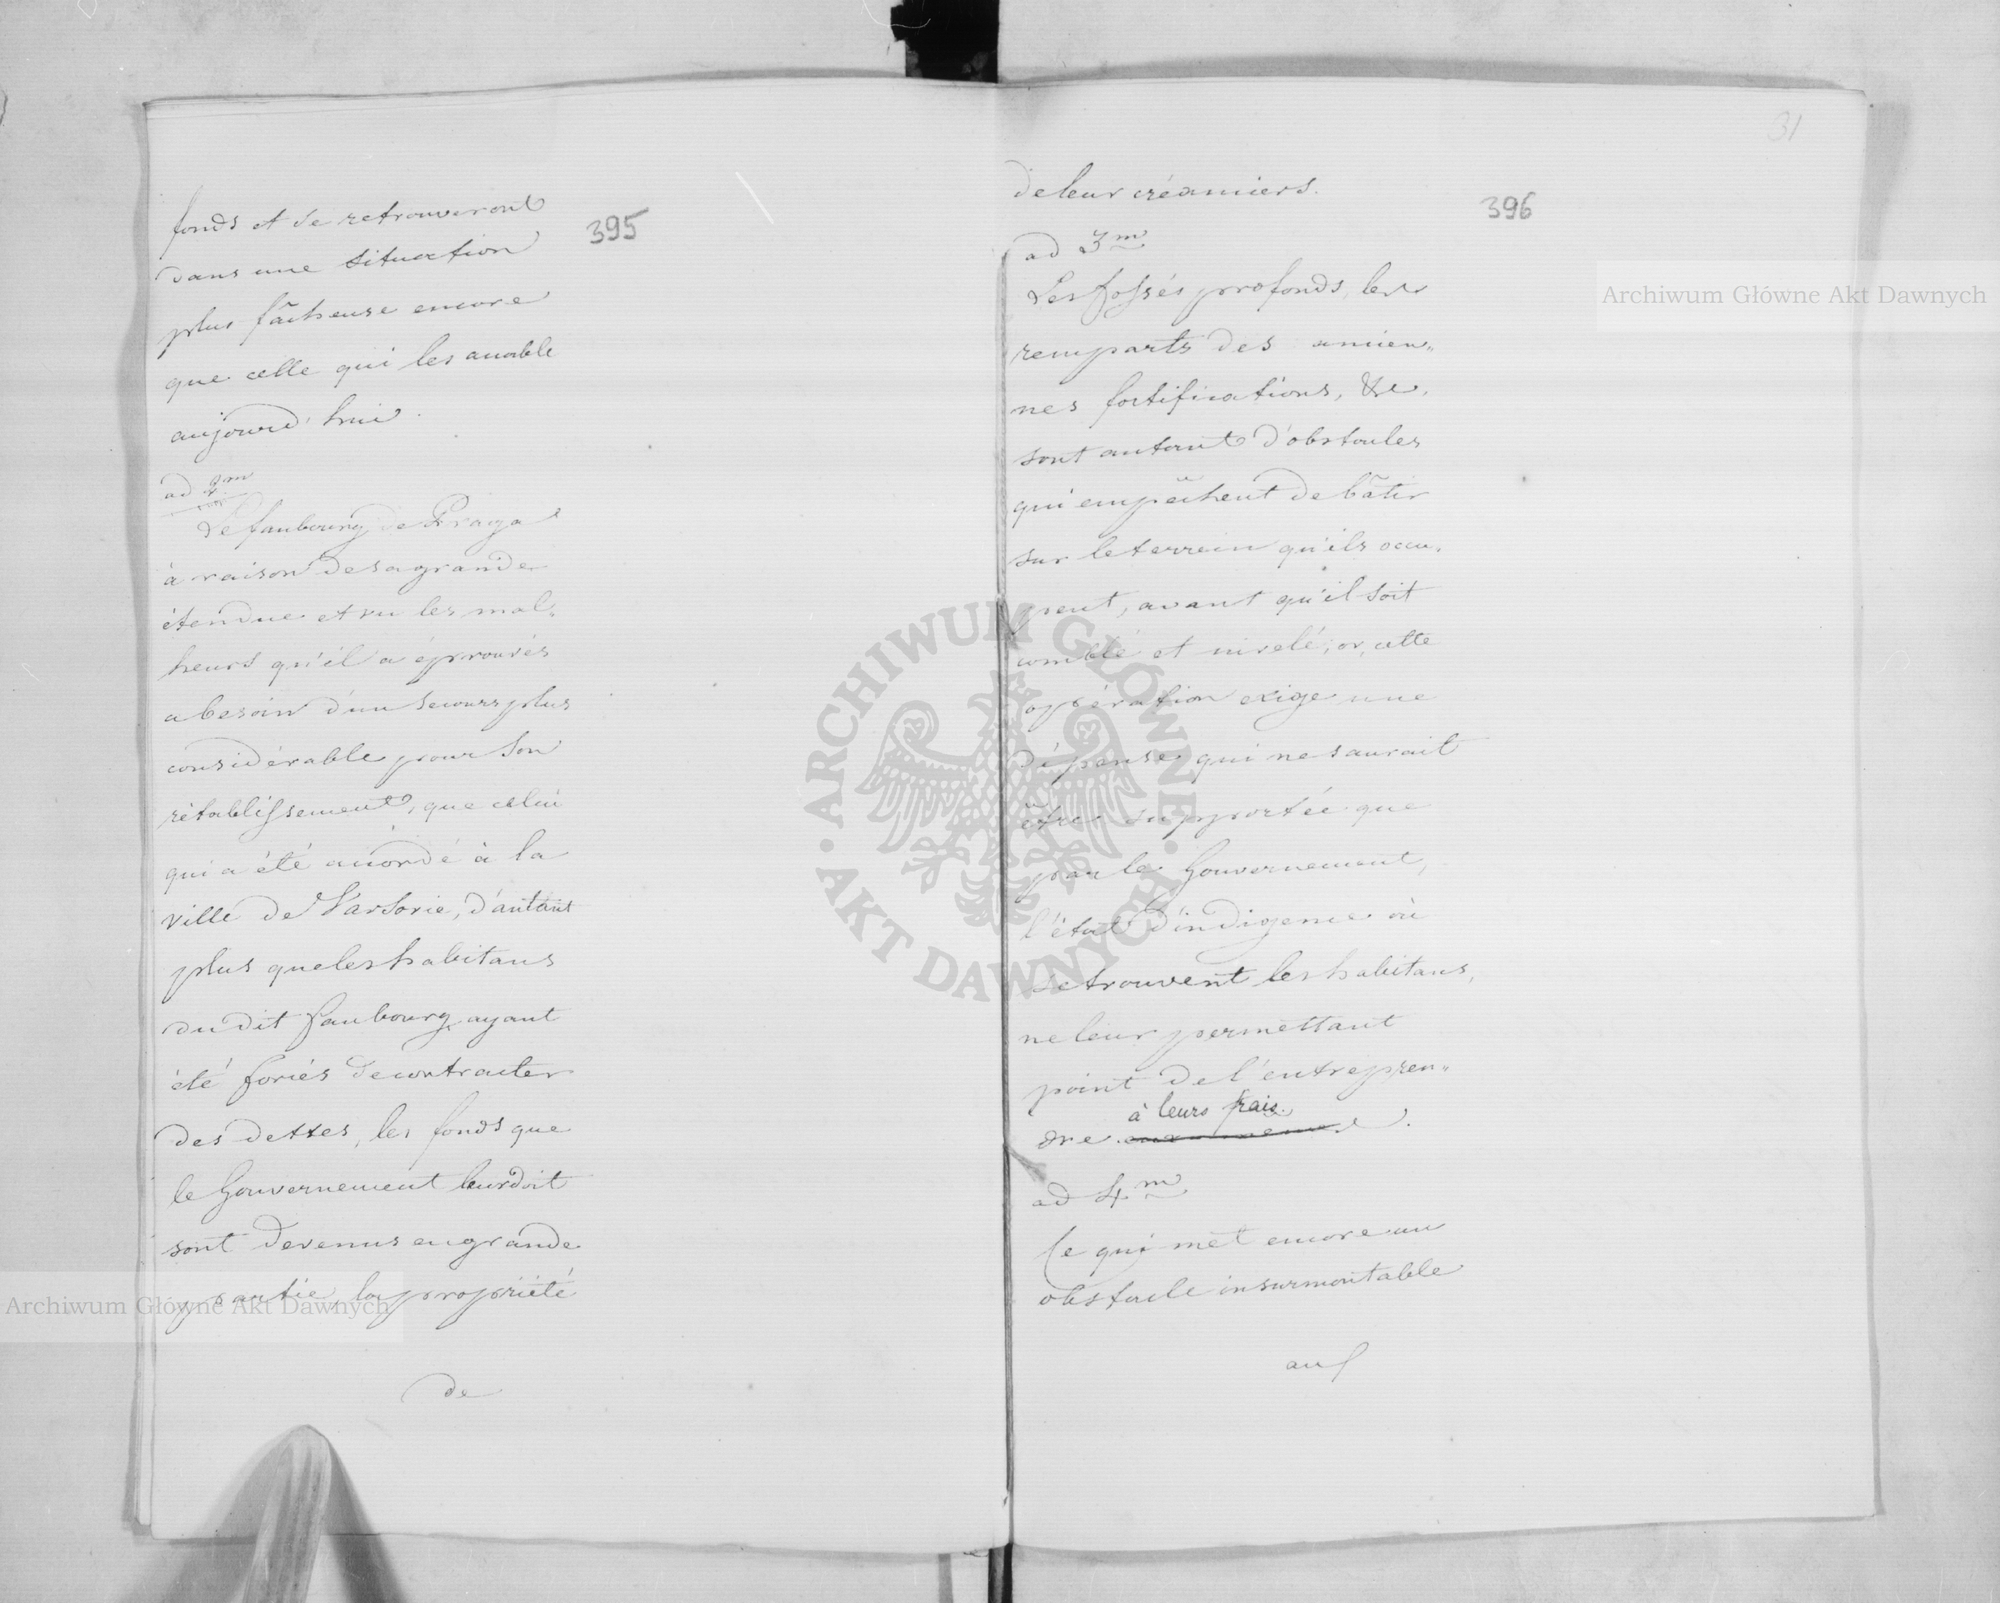 395
fonds et se retrouveront
dans une situation
plus fâcheuse encore
que celle qui les accable
aujourd'hui.
ad 2m
Le faubourg de Praga
à raison de sa grande
étendue et vu les mal„
heurs qu'il a éprouvés
a besoin d'un secours plus
considérable pour son
rétablissement, que celui
qui a été accordé à la
ville de Varsovie, d'autant
plus que les habitans
du dit faubourg ayant
été forcés de contracter
des dettes, les fonds que
le Gouvernement leur doit
sont devenus en grande
partie, la propriété
de
31
396
de leur créanciers.
ad 3m
Les fossés profonds, les
remparts des ancien„
nes fortifications, &c.
sont autant d'obstacles
qui empêchent de bâtir
sur le terrein qu'ils occu„
pent, avant qu'il soit
comblé et nivelé; or, cette
opération exige une
dépense qui ne saurait
être supportée que
par le Gouvernement,
l'état d'indigence où
se trouvent les habitans,
ne leur permettant
point de l'entrepren„
à leurs frais.
dre
ad 4m
Ce qui met encore un
obstacle insurmontable
au
Archiwum Główne Akt Dawnych
Archiwum Główne Akt Dawnych
ARCHIWUM GŁÓWNE · AKT DAWNYCH ·